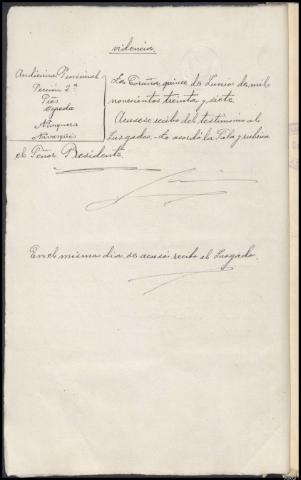 videncia
Audiencia Provincial
Sección 2ª
Cepeda
Nozquera
La Coruña quince de Junio de mil
novecientos treinta y siete
Acusese recibo del testimonio al
Juzgado. Lo acordó la Sala y rubrica
el Señor Presidente
En el mismo dia se acusó recibo al Juzgado.